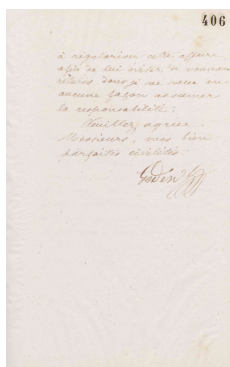 406
à régulariser cette affaire
afin de lui éviter de nouveaux
retards dont je ne veux en
aucune façon assumer
la responsabilité.
Veuillez agréer
Messieurs, mes bien
parfaites civilités
Godin